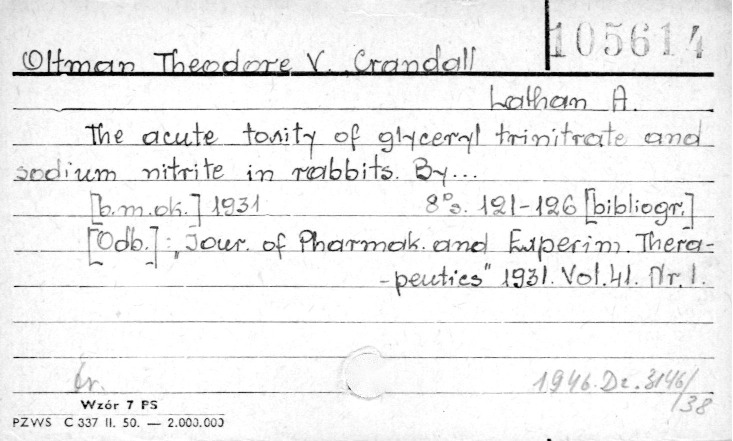 105614
Oltman Theodore V. Crandall
Lathan A.
The acute toxity of glyceryl trinitrate and
sodium nitrite in rabbits. By...
[b.m.ok.] 1931 8°s. 121-126 [bibliogr.]
[Odb.]: „Jour. of Pharmak. and Experim. Thera-
-peutics" 1931. Vol. 41. Nr. 1.
1946. Dz. 3146/
/38
Wzór 7 PS
PZWS C 337 II. 50. — 2.000.000